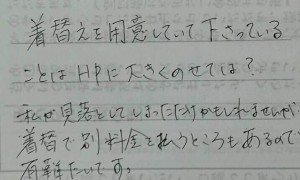 着替えを用意していて下さっている
ことはHPに大きくのせては？
私が見落としてしまっただけかもしれませんが
着替で別料金を払うところもあるので、
有難たいです。